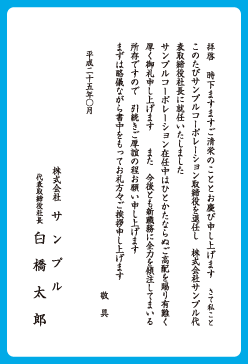 拝啓　時下ますますご清栄のこととお慶び申し上げます　さて私こと
このたびサンプルコーポレーション取締役を退任し　株式会社サンプル代
表取締役社長に就任いたしました
サンプルコーポレーション在任中はひとかたならぬご高配を賜り有難く
厚く御礼申し上げます　また　今後とも新職務に全力を傾注してまいる
所存ですので　引続きご厚誼の程お願い申し上げます
まずは略儀ながら書中をもってお礼方々ご挨拶申し上げます
敬具
平成二十五年〇月
株式会社　サンプル
代表取締役社長　白橋太郎